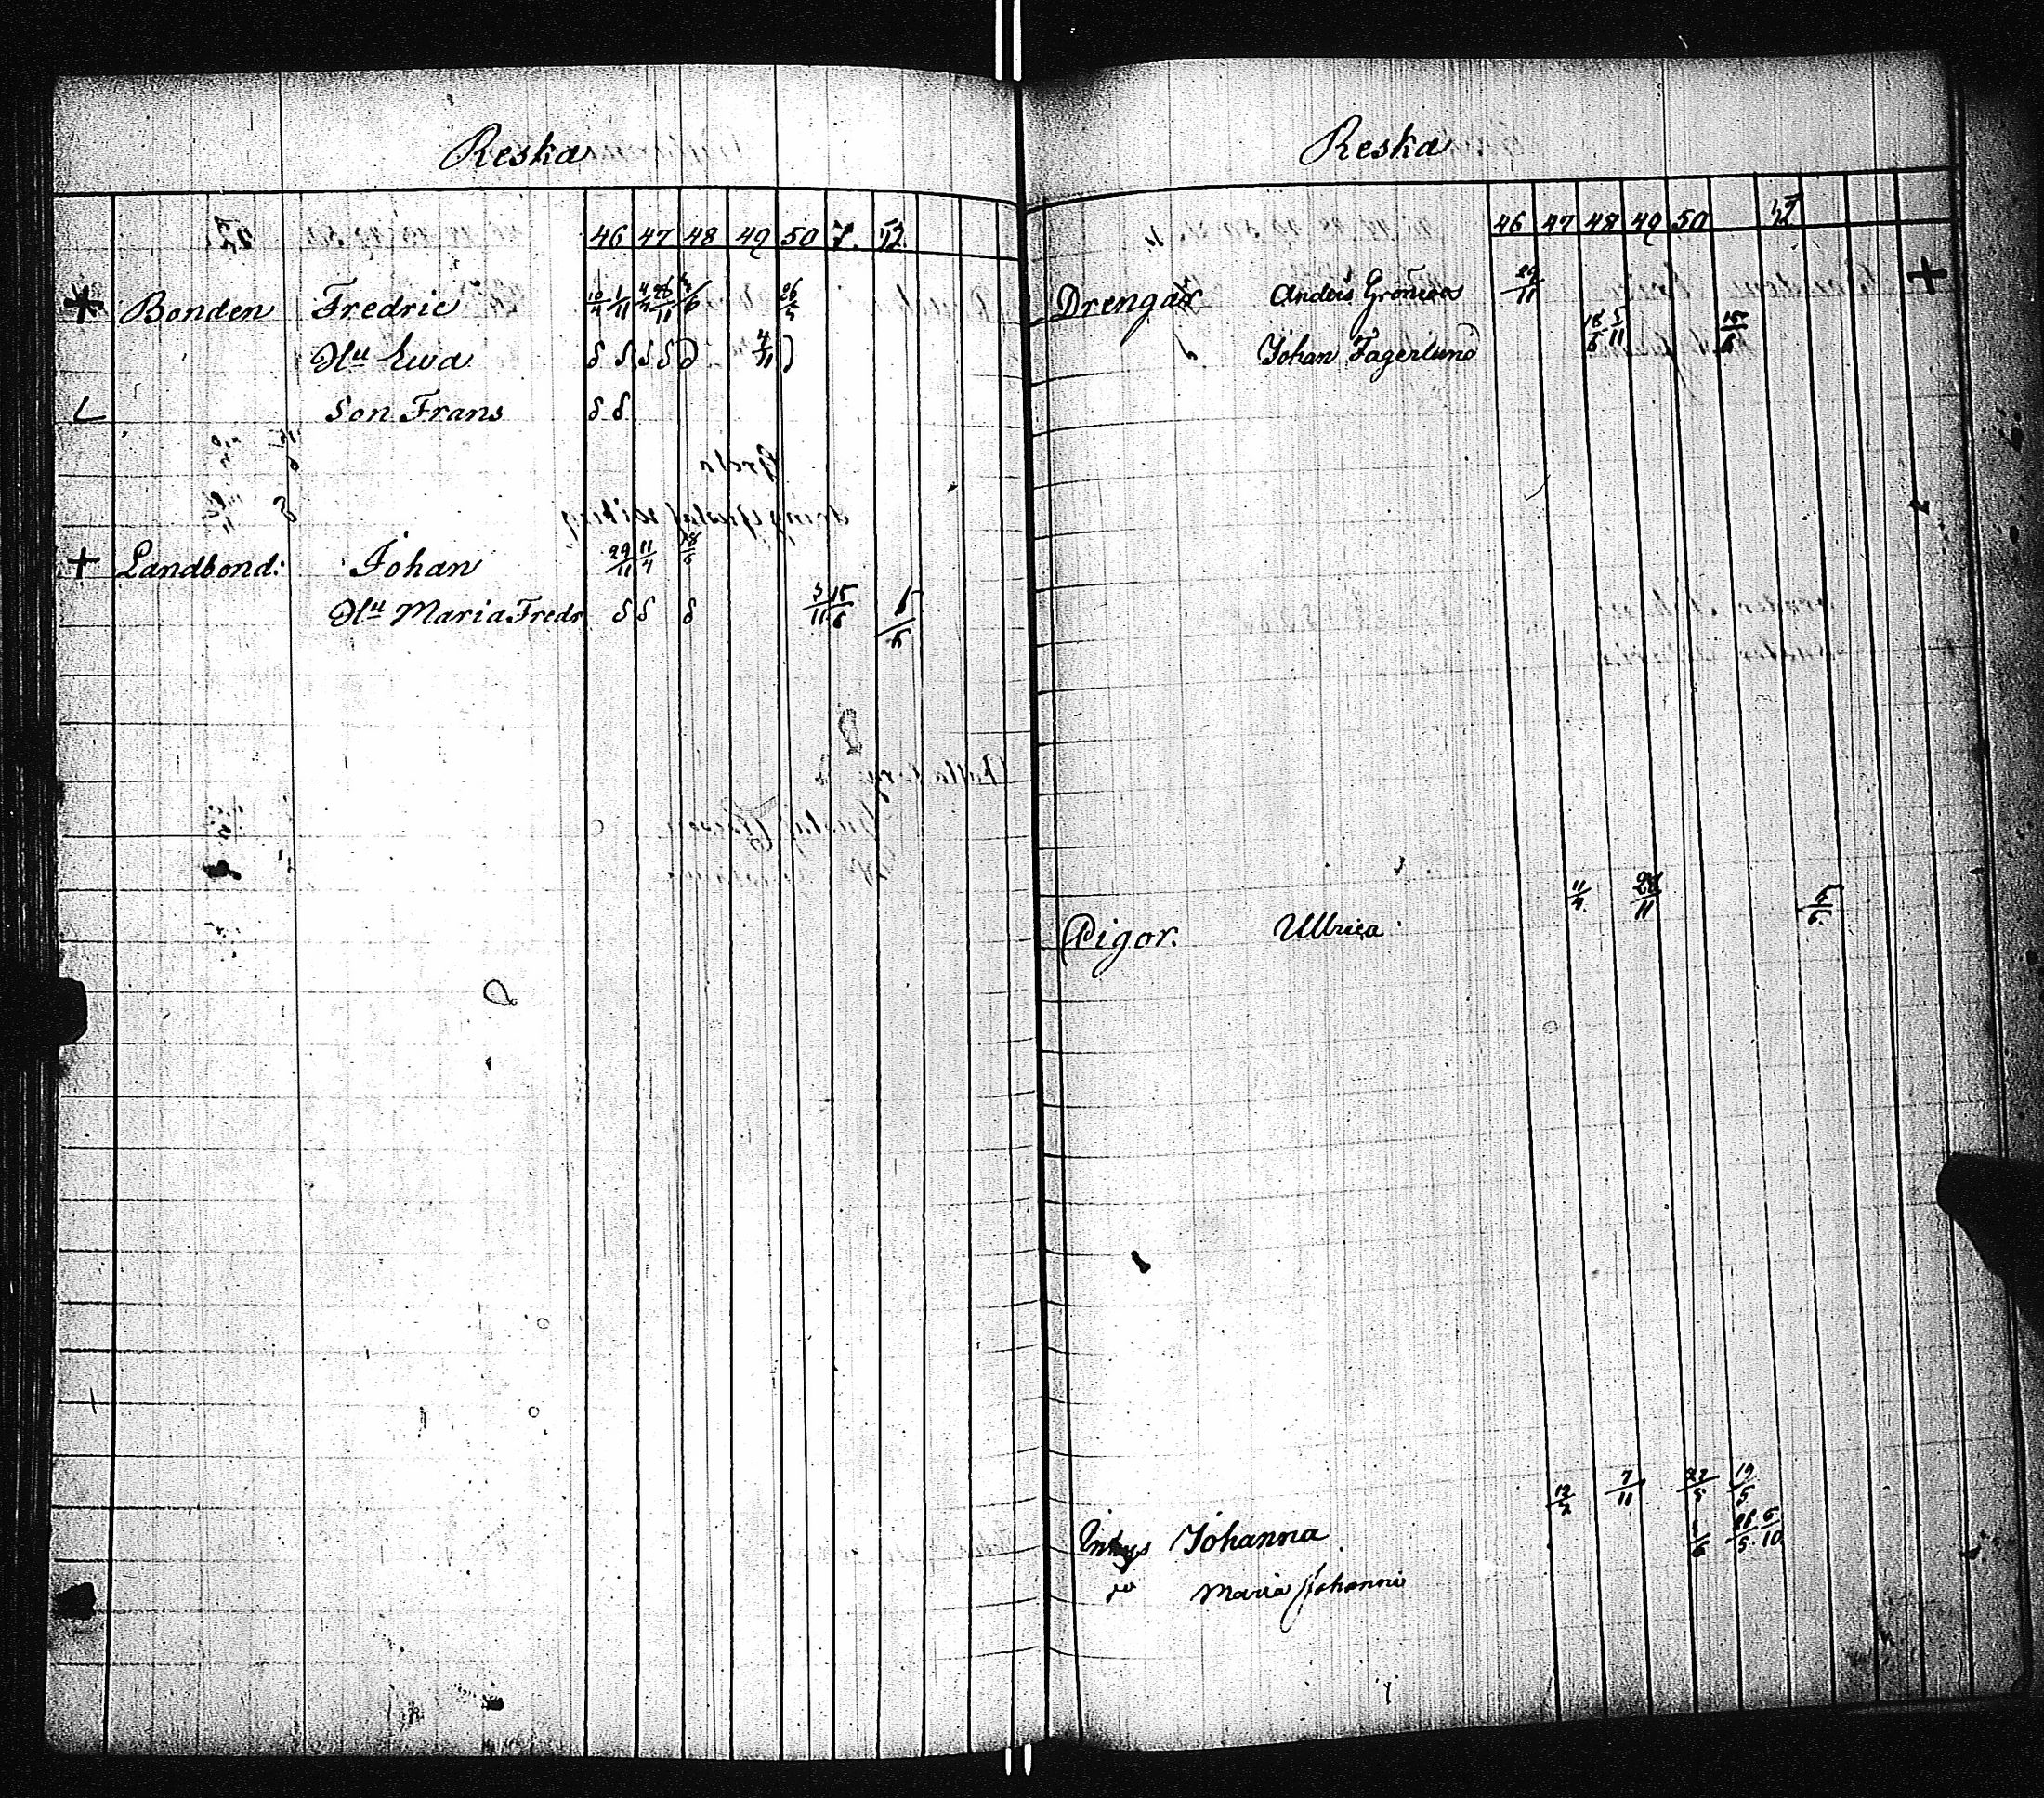 Reska
46 47 48 49 50 7. 52
Bonden Fredric 10/4 1/11 4/4 28/11 26/5
Hu Ewa δ δ δ δ δ 4/11
Son Frans δ δ
Landbond: Johan 29/11 11/4 18/6
Hu Maria Fredr δ δ δ 3/11 15/6 6/6
Reska
46 47 48 49 50 52
Drengar Anders Grönroos 29/11
Johan Fagerlund 18/6 5/11 15/6
Pigor. Ulrica 11/4 28/11 6/6
Johanna 12/2 7/11 22/5 19/5
Maria Johanna 1/6 28/5 6/10